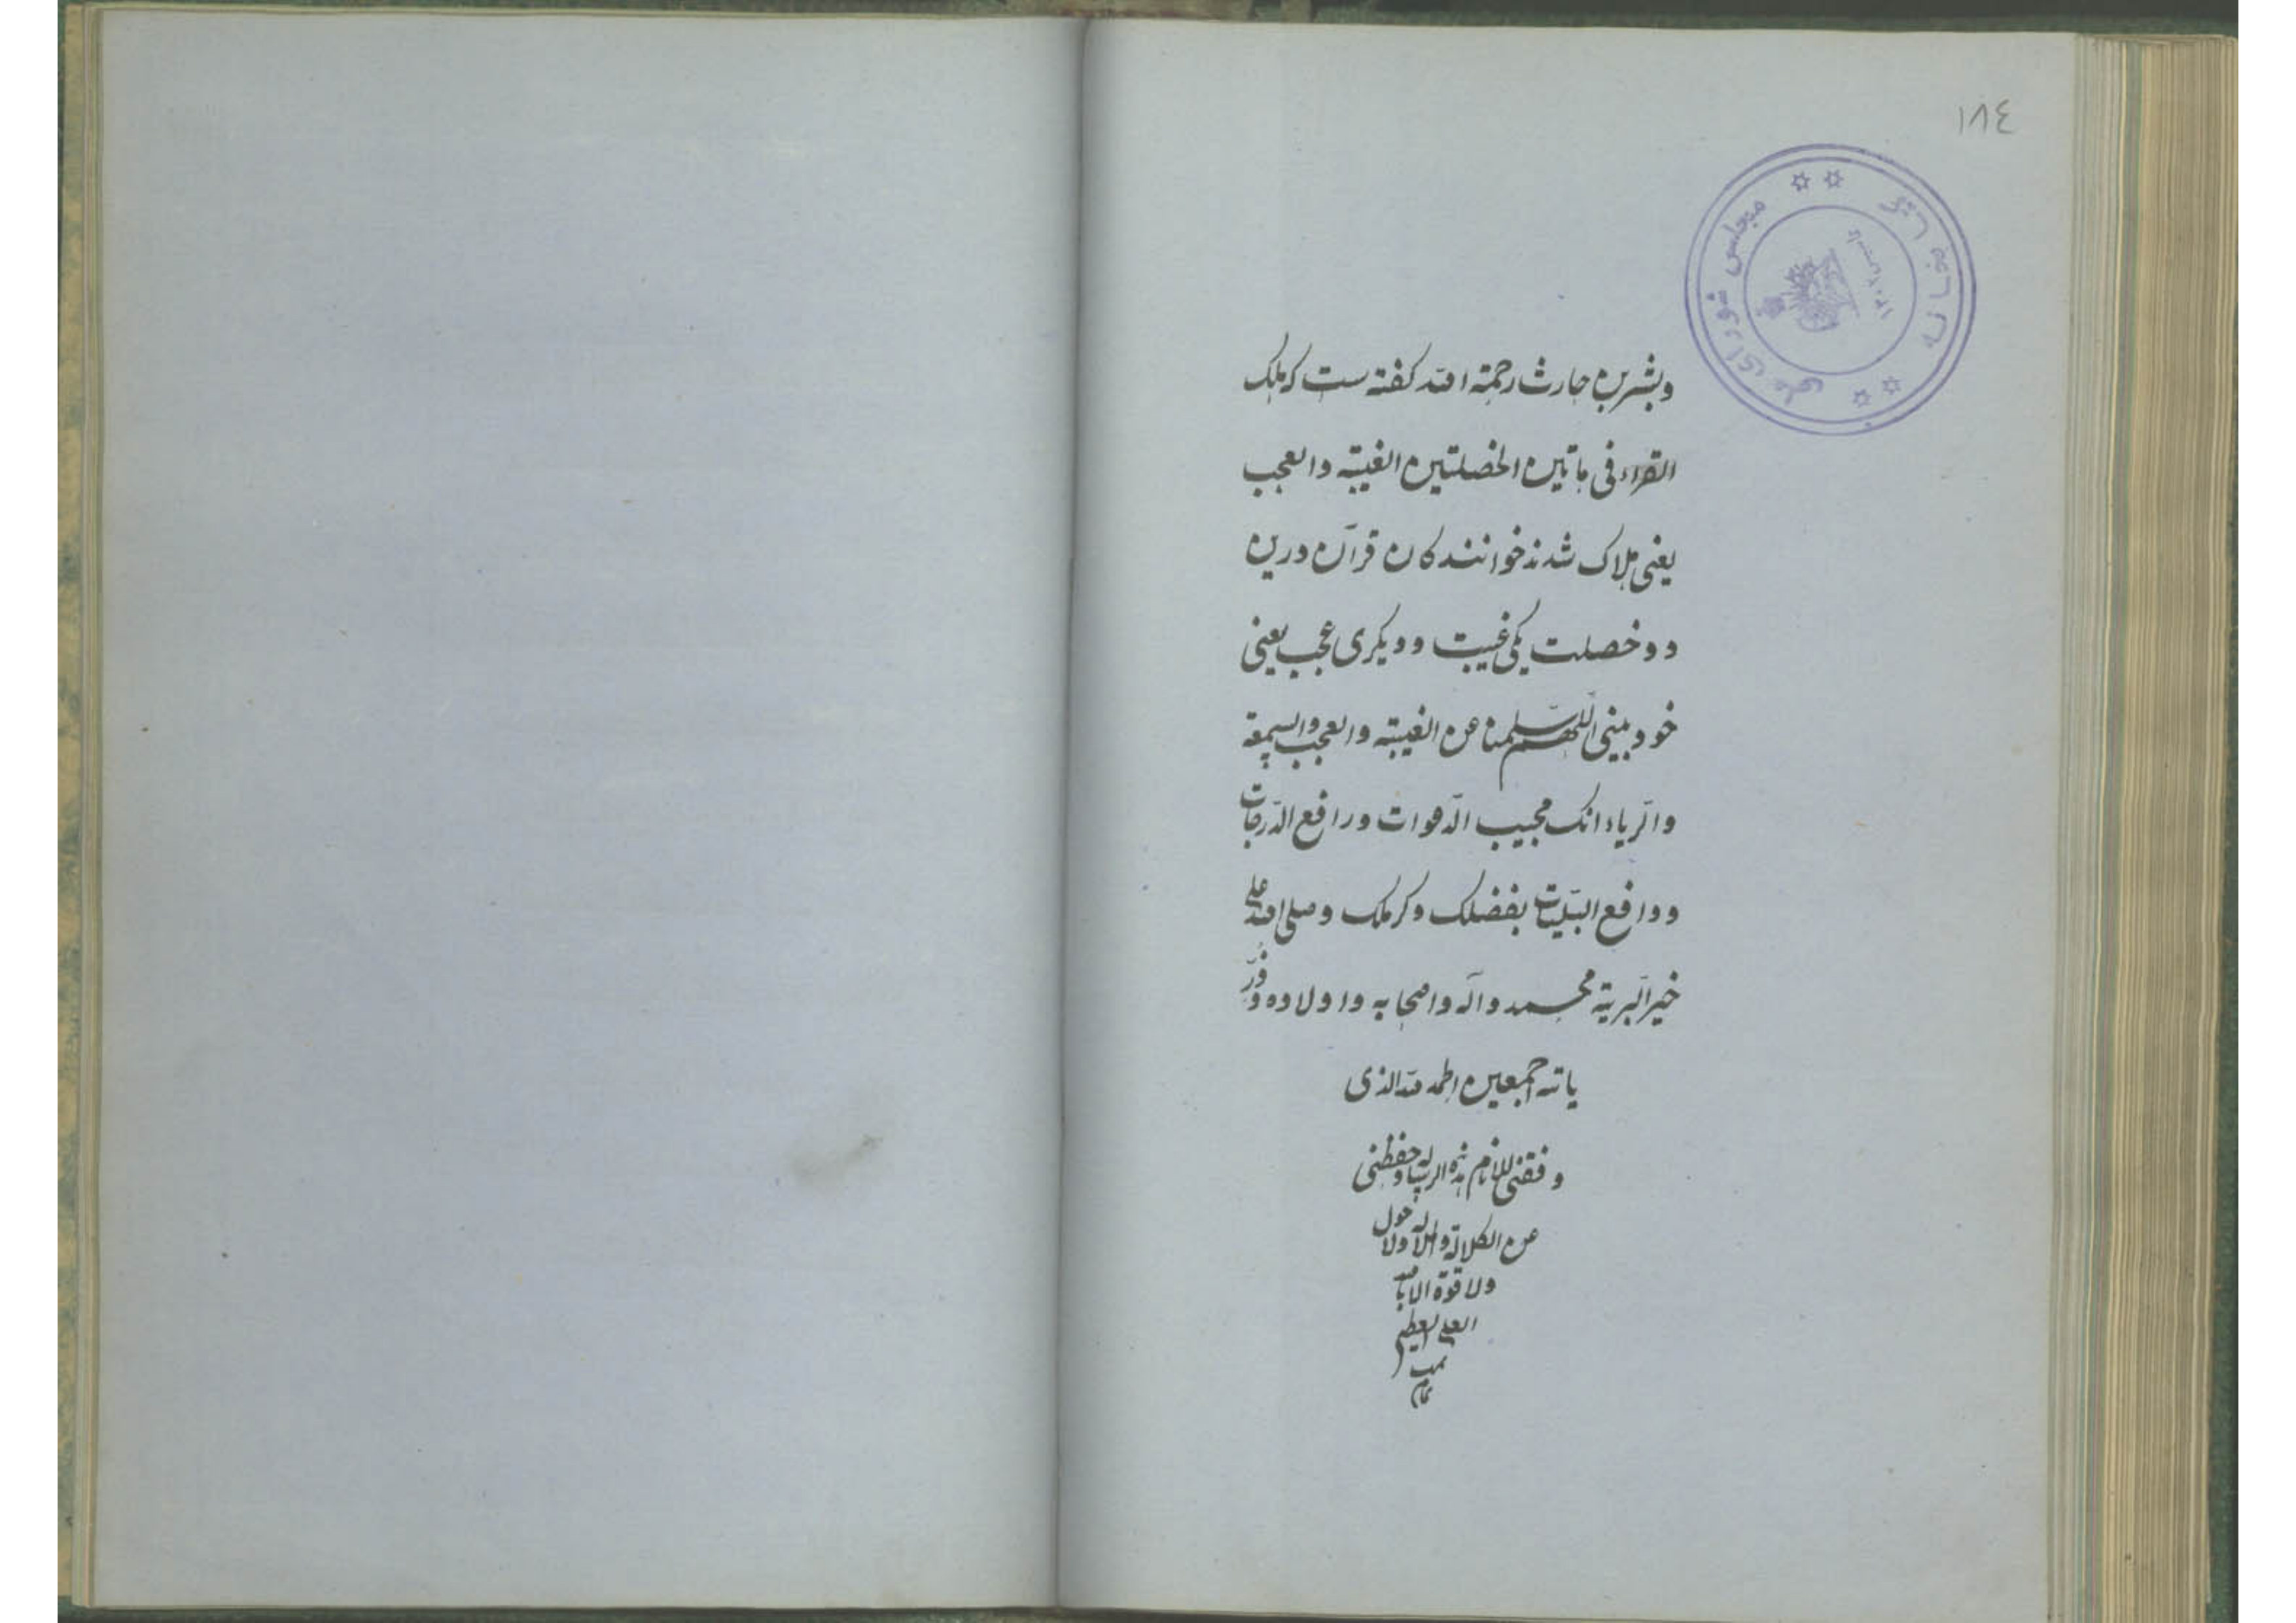 ١٨٤
مجلس شورای ملی
کتابخانه
وبشر بن حارث رحمة الله کفته ست که هلک
القراء فی هاتین الخصلتین الغیبة والعجب
یعنی هلاک شدند خوانندکان قرآن درین
دو خصلت یکی غیبت و دیکری عجب یعنی
خود بینی اللهم سلمنا عن الغیبة والعجب والسمعة
والریاء انک مجیب الدعوات ورافع الدرجات
ودافع البلیات بفضلک وکرمک وصلی الله علی
خیر البریة محمد وآله واصحابه واولاده وذر
یاته اجمعین الحمد لله الذی
وفقنی للاتمام هذه الرسالة وحفظنی
عن الکلالة والملالة ولا حول
ولا قوة الا بالله
العلی العظیم
تمت
تمام